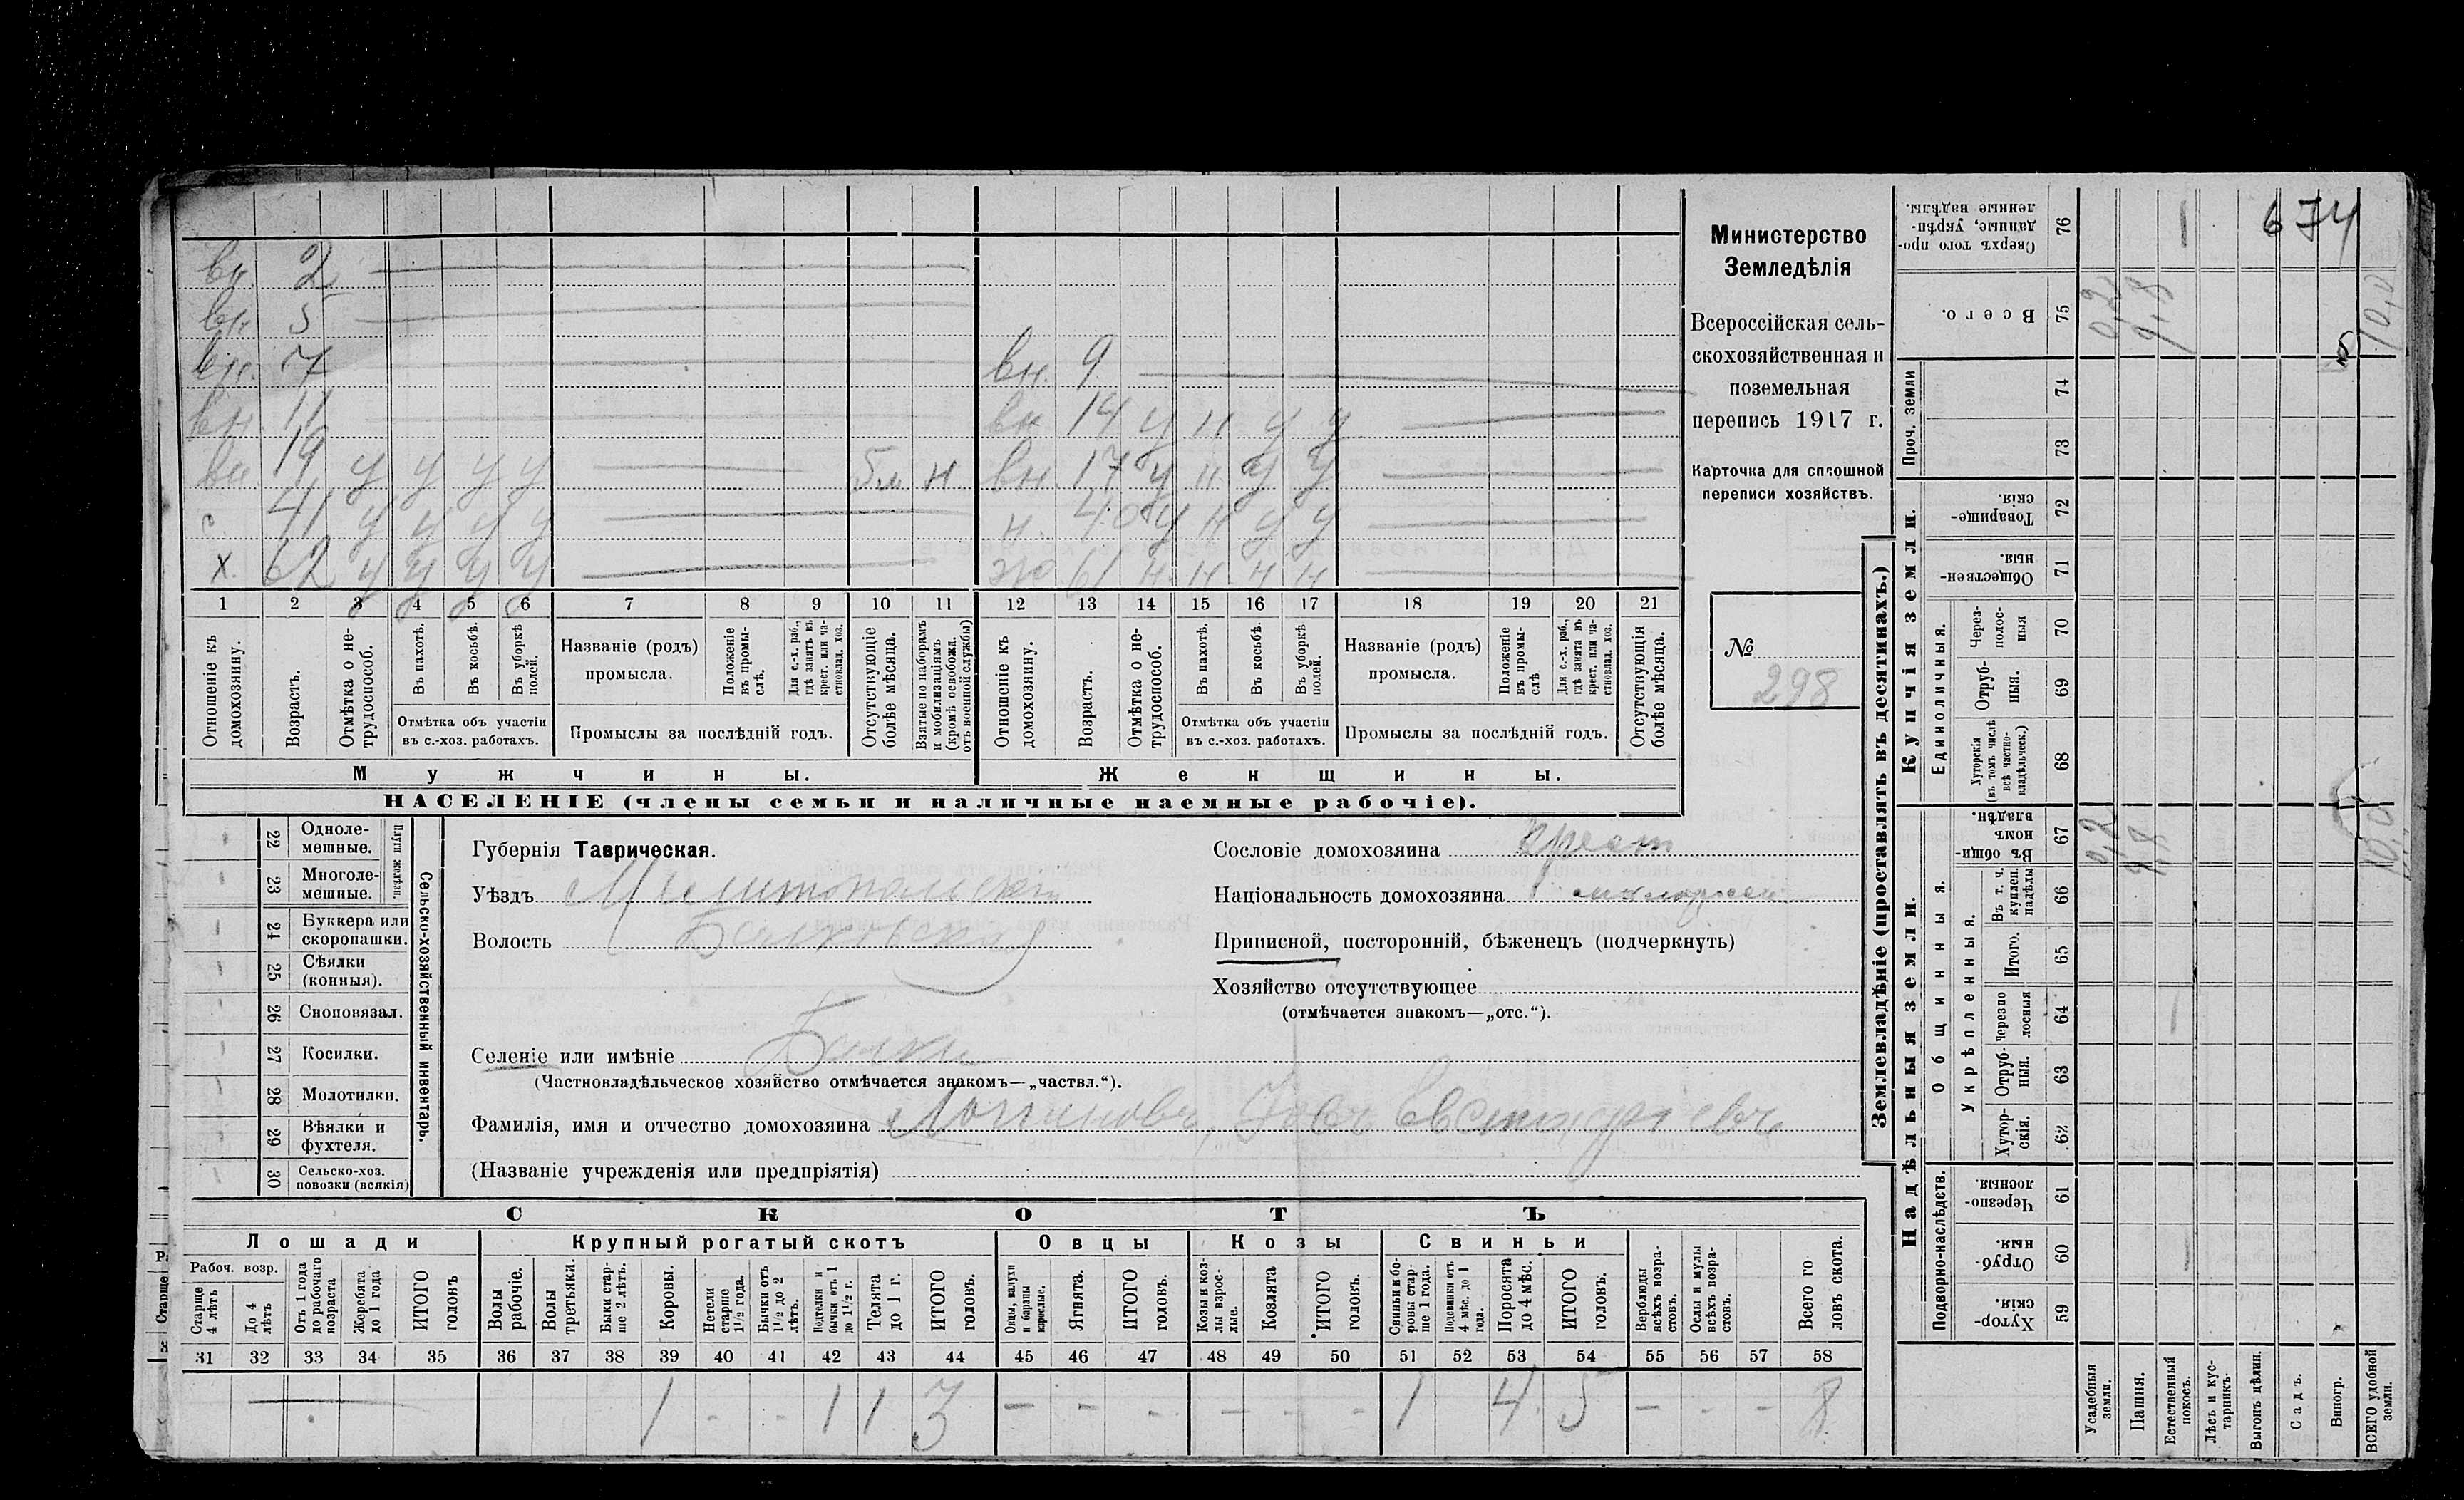 вн. 2
вн. 5
вн. 7 вн. 9
вн. 11 вн 14 у н у у
вн. 19 у у у у 5м н вн. 17 у н у у
с 41 у у у у н. 40 у н у у
х. 62 у у у у 61 н н н н
1 2 3 4 5 6 7 8 9 10 11 12 13 14 15 16 17 18 19 20 21
Отношеніе къ домохозяину.
Возрастъ.
Отмѣтка о не-
трудоспособ.
Въ пахотѣ.
Въ косьбѣ.
Въ уборкѣ полей.
Отмѣтка объ участіи
въ с.-хоз. работахъ.
Названіе (родъ)
промысла.
Положеніе въ промы-
слѣ.
Для с.-х. раб.,
гдѣ занятъ въ
крест. или ча-
стновлад. хоз.
Промыслы за послѣдній годъ.
Отсутствующіе
болѣе мѣсяца.
Взятые по наборамъ
и мобилизаціямъ
(кромѣ освобожд.
отъ военной службы)
Отношеніе къ
домохозяину.
Возрастъ.
Отмѣтка о не-
трудоспособ.
Въ пахотѣ.
Въ косьбѣ.
Въ уборкѣ
полей.
Отмѣтка объ участіи
въ с.-хоз. работахъ.
Названіе (родъ)
промысла.
Положеніе
въ промы-
слѣ
Для с.-х. раб.,
гдѣ занята въ
крест. или ча-
стновлад. хоз.
Промыслы за послѣдній годъ.
Отсутствующія
болѣе мѣсяца.
Мужчины.
Женщины.
НАСЕЛЕНІЕ (члены семьи и наличные наемные рабочіе).
Министерство
Земледѣлія
Всероссійская сель-
скохозяйственная и
поземельная
перепись 1917 г.
Карточка для сплошной
переписи хозяйствъ.
№
298
22 Одноле-
мешные.
23 Многоле-
мешные.
Плуги желѣзн.
24 Буккера или
скоропашки.
25 Сѣялки
(конныя).
26 Сноповязал.
27 Косилки.
28 Молотилки.
29 Вѣялки и
фухтеля.
30 Сельско-хоз.
повозки (всякія)
Сельско-хозяйственный инвентарь.
Губернія Таврическая.
Уѣздъ Мелитопольскій
Волость Балковская
Селеніе или имѣніе Балки
(Частновладѣльческое хозяйство отмѣчается знакомъ—„частвл.“).
Фамилія, имя и отчество домохозяина Логиновъ, Іовъ
(Названіе учрежденія или предпріятія)
Сословіе домохозяина крест
Національность домохозяина
Приписной, посторонній, бѣженецъ (подчеркнуть)
Хозяйство отсутствующее
(отмѣчается знакомъ—„отс.“).
СКОТЪ
Лошади
Рабоч. возр.
Старше
4 лѣтъ
До 4
лѣтъ
Отъ 1 года
до рабочаго
возраста
Жеребята
до 1 года
ИТОГО
головъ
Крупный рогатый скотъ
Волы
рабочіе.
Волы
третьяки.
Быки стар-
ше 2 лѣтъ.
Коровы.
Нетели
старше
1½ года.
Бычки отъ
1½ до 2
лѣтъ.
Подтелки и
бычки отъ 1
до 1½ г.
Телята
до 1 г.
ИТОГО
головъ.
Овцы
Овцы, валухи
и бараны
взрослые.
Ягнята.
ИТОГО
головъ.
Козы
Козы и коз-
лы взрос-
лые.
Козлята
ИТОГО
головъ.
Свиньи
Свиньи и бо-
ровы стар-
ше 1 года.
Подсвинки отъ
4 мѣс. до 1
года.
Поросята
до 4 мѣс.
ИТОГО
головъ.
Верблюды
всѣхъ возра-
стовъ.
Ослы и мулы
всѣхъ возра-
стовъ.
Всего го
ловъ скота.
31 32 33 34 35 36 37 38 39 40 41 42 43 44 45 46 47 48 49 50 51 52 53 54 55 56 57 58
— 1 - - 1 1 3 - - - - - - 1 4 5 - - - 8
Землевладѣніе (проставлять въ десятинахъ.)
Купчія земли.
Надѣльныя земли.
Сверхъ того про-
данные, укрѣп-
ленные надѣлы.
76
Всего.
75
Проч. земли
74
73
Товарище-
скія.
72
Обществен-
ныя.
71
Единоличныя.
Через-
полос-
ныя
70
Отруб-
ныя.
69
Хуторскія
(въ томъ числѣ
всѣ частно-
владѣльческ.)
68
Общинныя.
Въ общин-
номъ
владѣн.
67
Укрѣпленныя.
Въ т. ч.
куплен.
надѣлы
66
Итого.
65
Черезпо
лосныя
64
Отруб-
ныя.
63
Хутор-
скія.
62
Подворно-наслѣдств.
Черезпо-
лосныя.
61
Отруб-
ныя.
60
Хутор-
скія.
59
Усадебныя
земли.
Пашня.
Естественный
покосъ.
Лѣсъ и кус-
тарникъ.
Выгонъ цѣлин.
Садъ.
Виногр.
ВСЕГО удобной
земли.
674
0,2
9,8
5
10,0
0,2
9,8
10,0